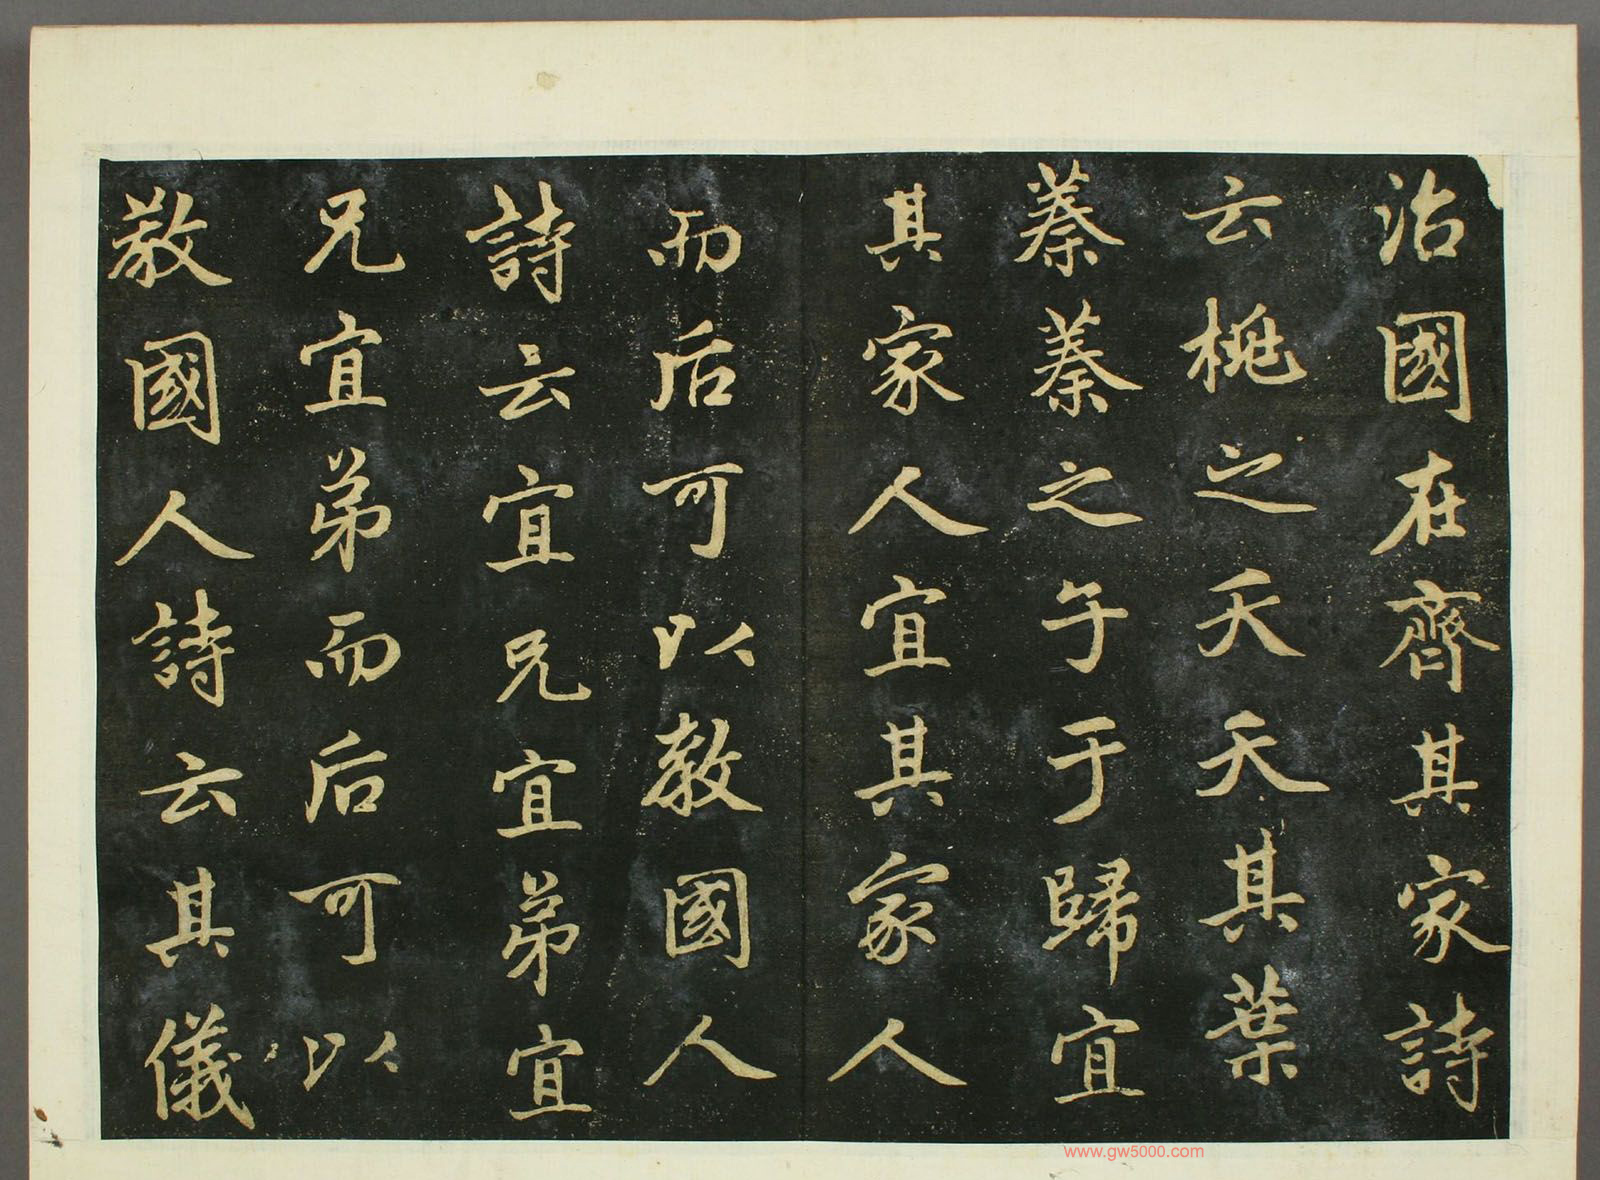 治國在齊其家詩
云桃之夭夭其葉
蓁蓁之子于歸宜
其家人宜其家人
而后可以教國人
詩云宜兄宜弟宜
兄宜弟而后可以
教國人詩云其儀
www.gw5000.com